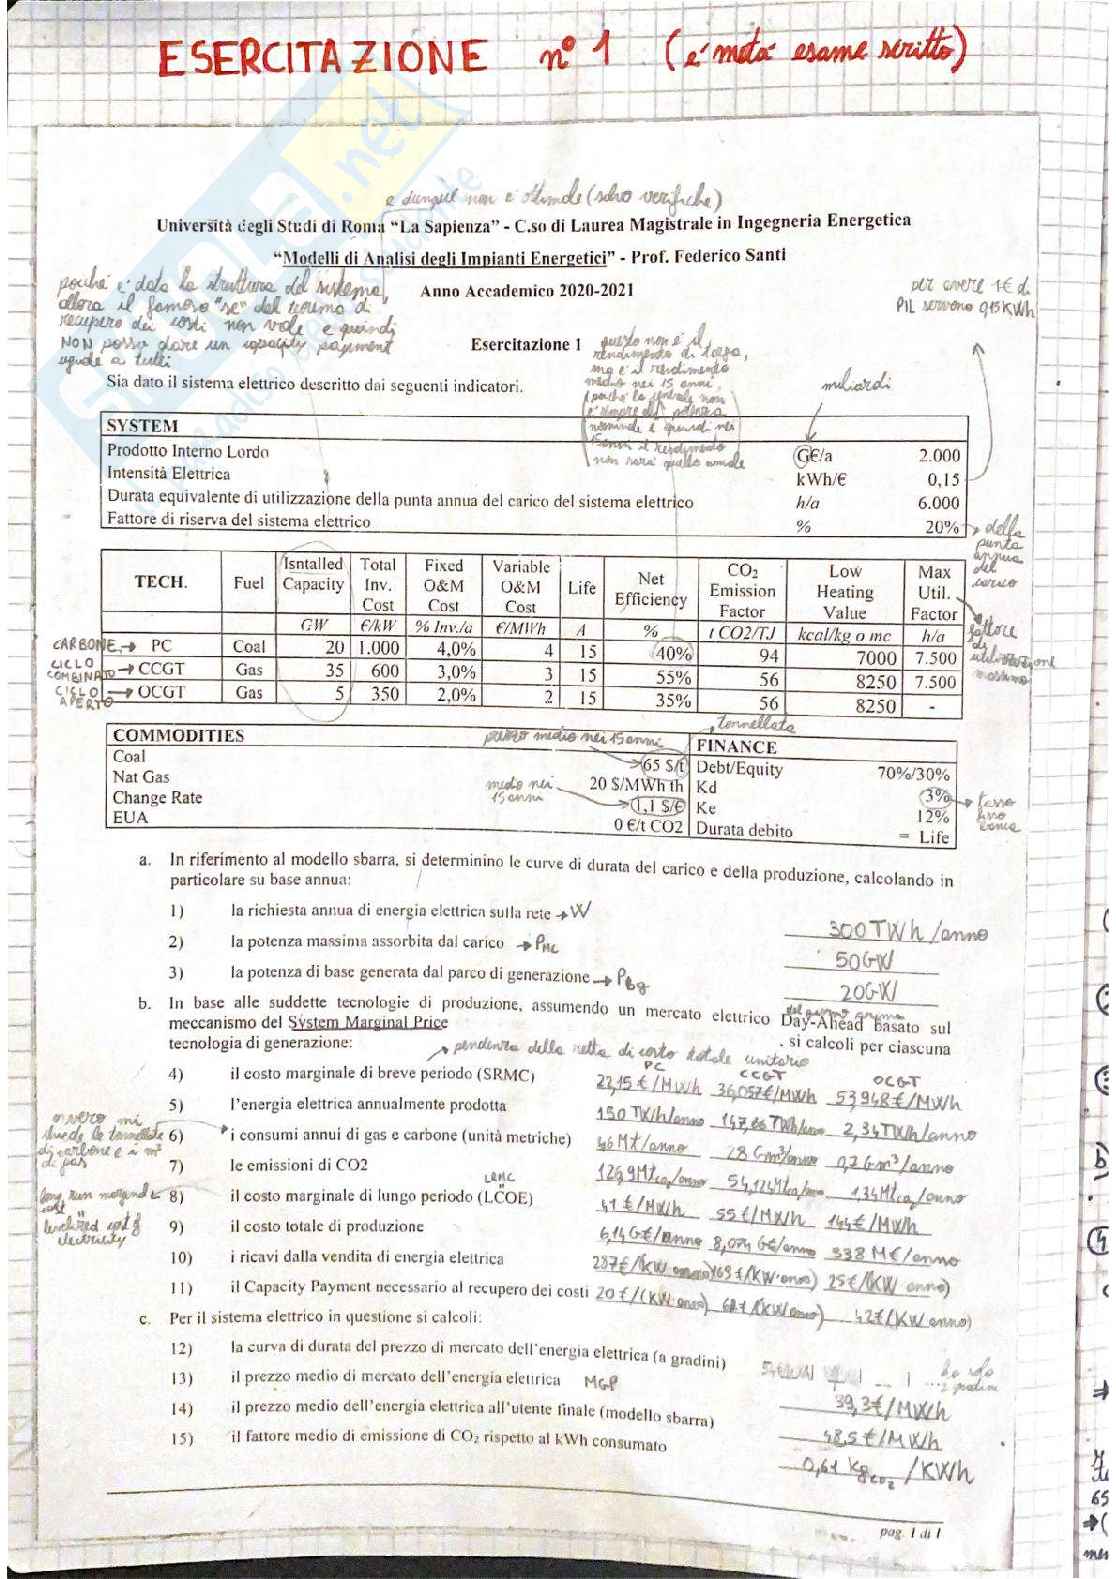 ESERCITAZIONE n° 1 (e' metà esame scritto)
e dunque non è ottimale (solo verifiche)
Università degli Studi di Roma “La Sapienza” - C.so di Laurea Magistrale in Ingegneria Energetica
“Modelli di Analisi degli Impianti Energetici” - Prof. Federico Santi
Anno Accademico 2020-2021
poiché è data la struttura del sistema,
allora il famoso "se" del teorema di
recupero dei costi non vale e quindi
NON posso dare un capacity payment
uguale a tutti
per avere 1€ di
PIL servono 0,15 KWh
Esercitazione 1
questo non è il
rendimento di targa,
ma è il rendimento
medio nei 15 anni,
(perché la centrale non
è sempre alla potenza
nominale e quindi nei
15 anni il rendimento
non sarà quello nominale
miliardi
Sia dato il sistema elettrico descritto dai seguenti indicatori.
SYSTEM
Prodotto Interno Lordo G€/a 2.000
Intensità Elettrica kWh/€ 0,15
Durata equivalente di utilizzazione della punta annua del carico del sistema elettrico h/a 6.000
Fattore di riserva del sistema elettrico % 20%
della
punta
annua
del
carico
TECH. Fuel Isntalled Capacity Total Inv. Cost Fixed O&M Cost Variable O&M Cost Life Net Efficiency CO2 Emission Factor Low Heating Value Max Util. Factor
GW €/kW % Inv./a €/MWh A % t CO2/TJ kcal/kg o mc h/a
CARBONE → PC Coal 20 1.000 4,0% 4 15 40% 94 7000 7.500
CICLO COMBINATO → CCGT Gas 35 600 3,0% 3 15 55% 56 8250 7.500
CICLO APERTO → OCGT Gas 5 350 2,0% 2 15 35% 56 8250 -
fattore
di
utilizzazione
massimo
prezzo medio nei 15 anni
tonnellata
COMMODITIES
Coal 65 $/t
Nat Gas 20 $/MWh th
Change Rate 1,1 $/€
EUA 0 €/t CO2
medio nei
15 anni
FINANCE
Debt/Equity 70%/30%
Kd 3%
Ke 12%
Durata debito = Life
tasso
fisso
a. In riferimento al modello sbarra, si determinino le curve di durata del carico e della produzione, calcolando in
particolare su base annua:
1) la richiesta annua di energia elettrica sulla rete → W 300 TWh/anno
2) la potenza massima assorbita dal carico → PMC 50 GW
3) la potenza di base generata dal parco di generazione → Pbg 20 GW
b. In base alle suddette tecnologie di produzione, assumendo un mercato elettrico Day-Ahead basato sul
del giorno prima
meccanismo del System Marginal Price . si calcoli per ciascuna
tecnologia di generazione:
→ pendenza della retta di costo totale unitario
PC CCGT OCGT
4) il costo marginale di breve periodo (SRMC) 22,15 €/MWh 36,057 €/MWh 53,948 €/MWh
5) l'energia elettrica annualmente prodotta 150 TWh/anno 147,66 TWh/anno 2,34 TWh/anno
6) i consumi annui di gas e carbone (unità metriche) 46 Mt/anno 28 Gm³/anno 0,7 Gm³/anno
ovvero mi
chiede le tonnellate
di carbone e i m³
di gas
7) le emissioni di CO2 126,9 Mtco2/anno 54,124 Mtco2/anno 1,34 Mtco2/anno
LRMC
8) il costo marginale di lungo periodo (LCOE) 41 €/MWh 55 €/MWh 144 €/MWh
long run marginal
cost
levelized cost of
electricity
9) il costo totale di produzione 6,14 G€/anno 8,074 G€/anno 338 M€/anno
10) i ricavi dalla vendita di energia elettrica 287 €/(KW anno) 169 €/(KW·anno) 25 €/(KW anno)
11) il Capacity Payment necessario al recupero dei costi 20 €/(KW anno) 62 €/(KW anno) 42 €/(KW anno)
c. Per il sistema elettrico in questione si calcoli:
12) la curva di durata del prezzo di mercato dell'energia elettrica (a gradini)
ho solo
2 gradini
13) il prezzo medio di mercato dell'energia elettrica MGP 39,3 €/MWh
14) il prezzo medio dell'energia elettrica all'utente finale (modello sbarra) 48,5 €/MWh
15) il fattore medio di emissione di CO2 rispetto al kWh consumato 0,61 kgCO2/KWh
pag. 1 di 1